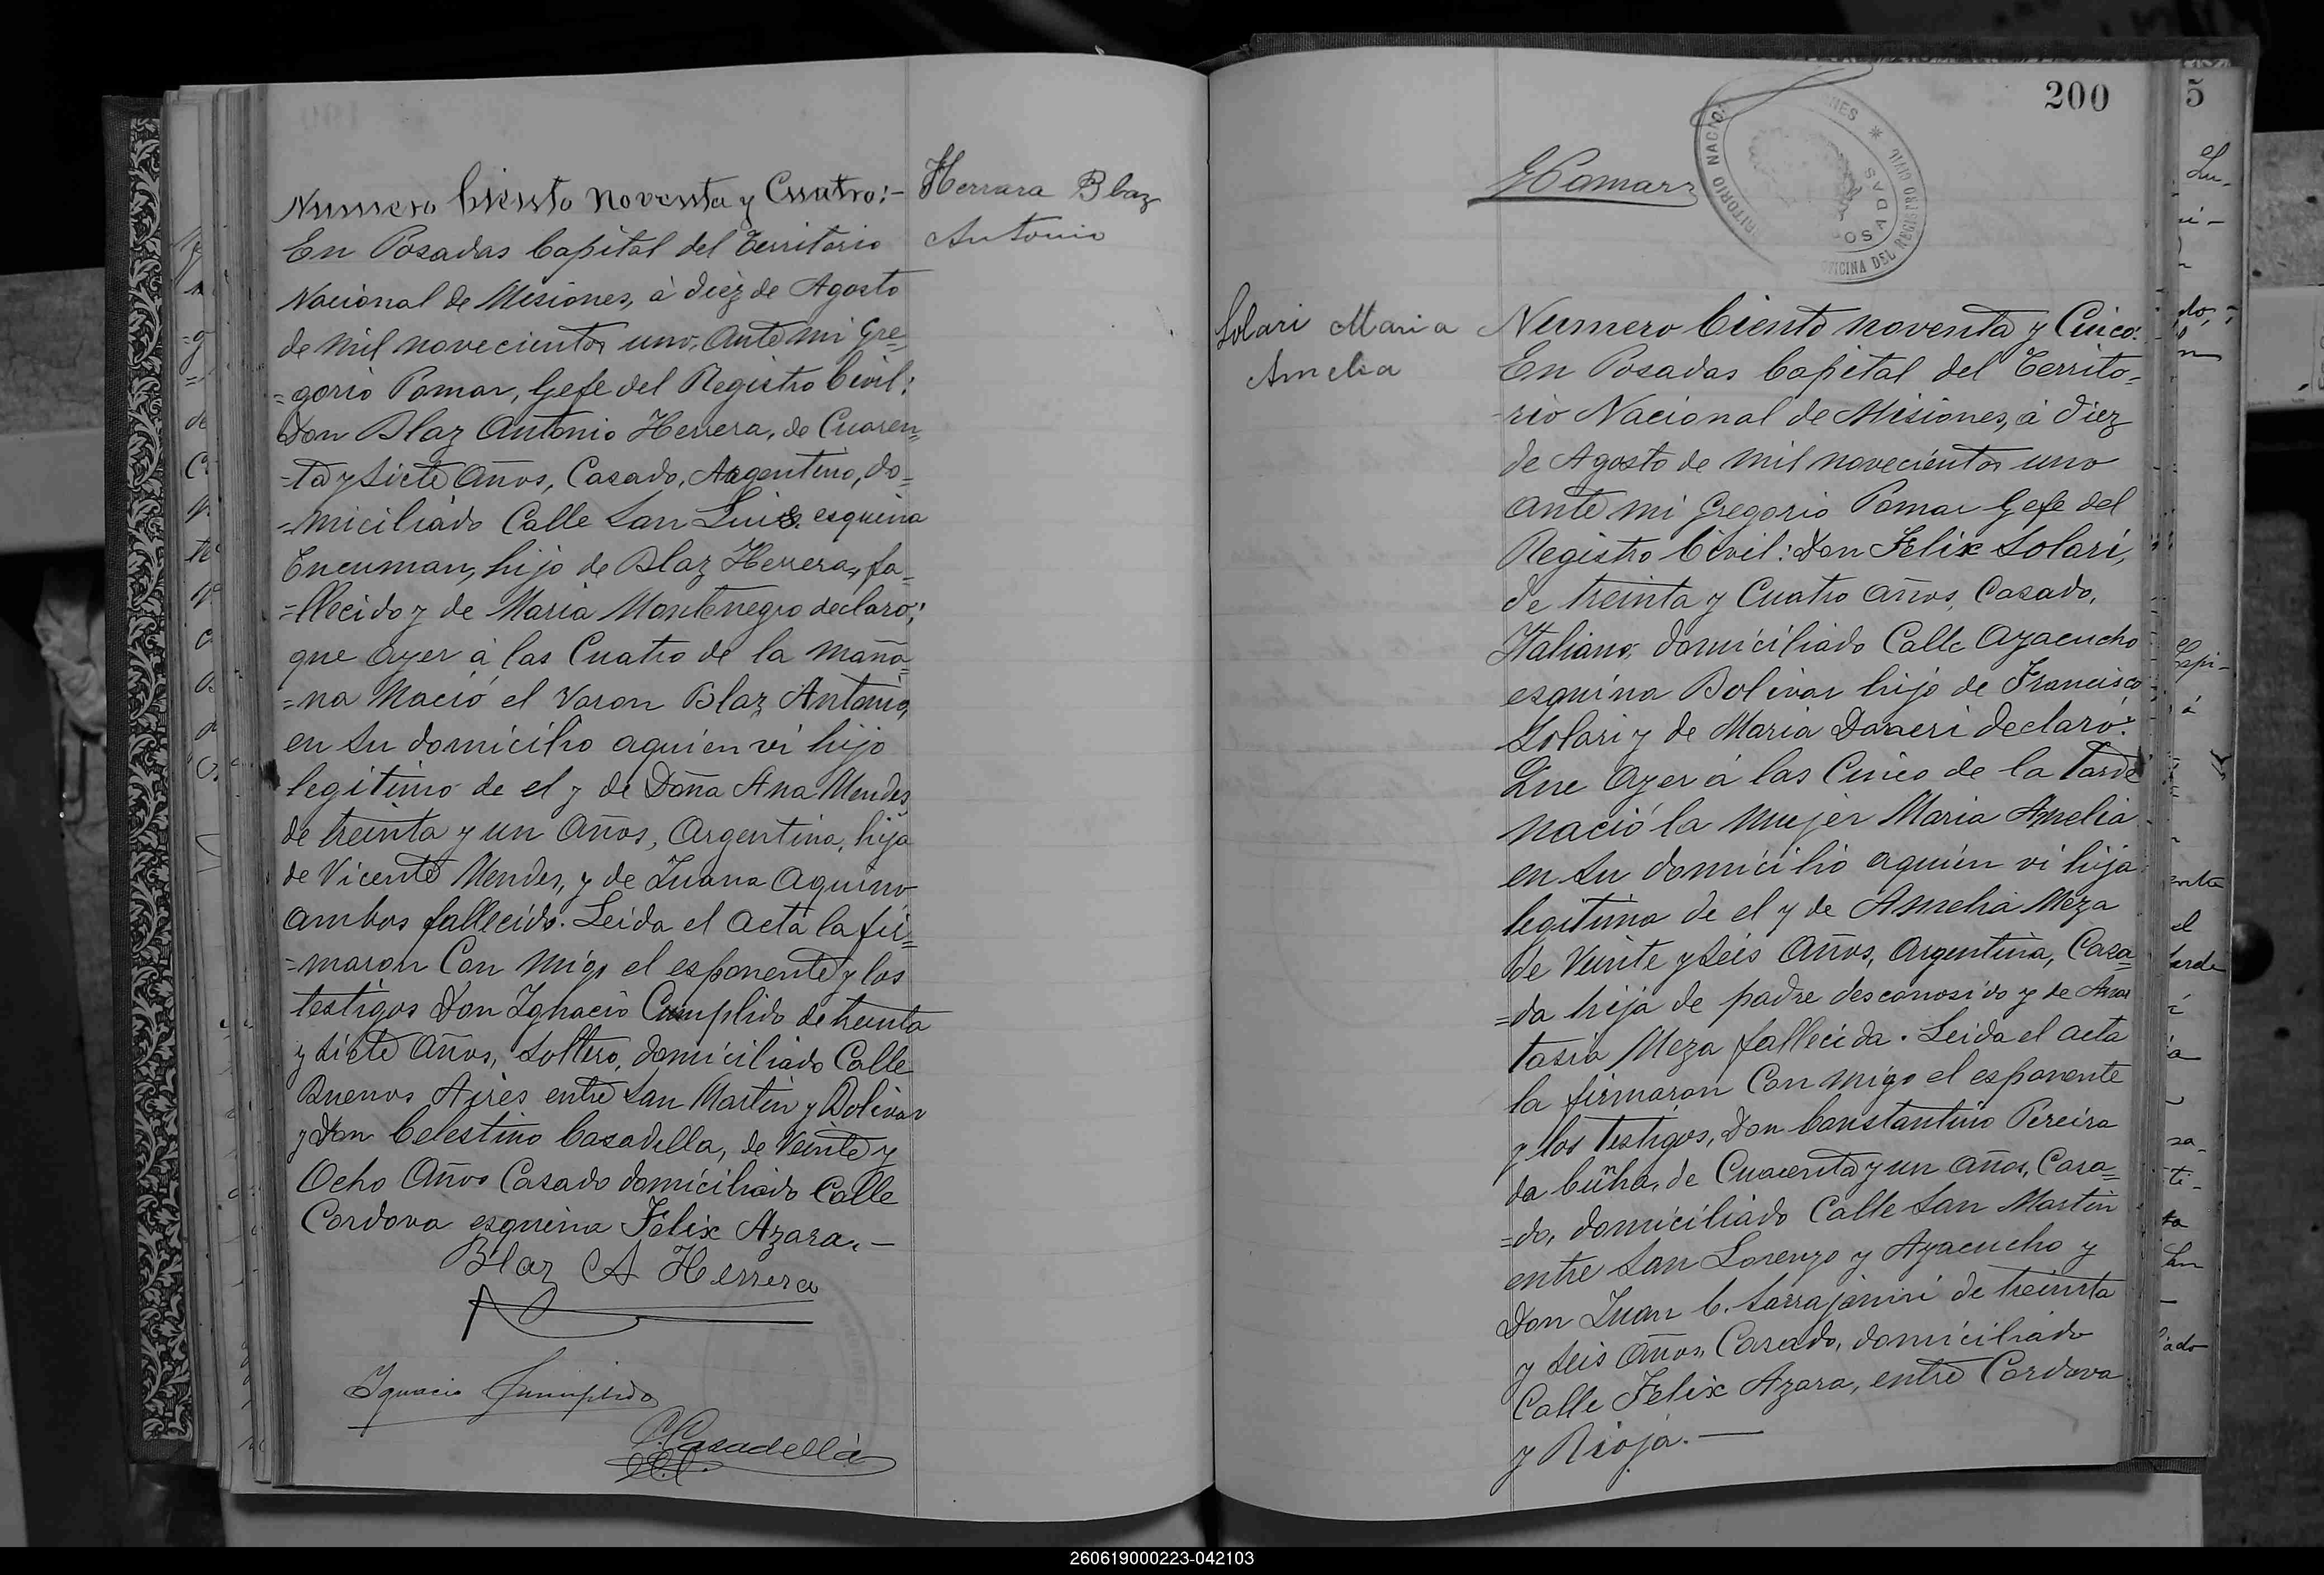 Numero Ciento noventa y Cuatro:-
En Posadas Capital del Territorio
Nacional de Misiones, á diez de Agosto
de mil novecientos uno, Ante mi Gre=
=gorio Pomar, Gefe del Registro Civil:
Don Blaz Antonio Herrera, de Cuaren=
=ta y siete Años, Casado, Argentino, do=
=miciliado Calle San Luis esquina
Tucuman, hijo de Blaz Herrera, fa=
=llecido y de Maria Montenegro declaro:
que ayer á las Cuatro de la maña=
=na Nació el Varon Blaz Antonio,
en su domicilio aquien vi hijo
legitimo de el y de Doña Ana Mendes
de treinta y un Años, Argentina, hija
de Vicente Mendes, y de Juana Aquino
ambos fallecido. Leida el acta la fir=
=maron Con migo el esponente y los
testigos Don Ignacio Cumplido de treinta
y siete Años, Soltero, domiciliado Calle
Buenos Aires entre San Martin y Bolivar
y Don Celestino Casadella, de Veinte y
Ocho Años Casado domiciliado Calle
Cordova esquina Felix Azara.-
Blaz A Herrera
Ignacio Cumplido
C. Casadellá
Herrara Blaz
Antonio
200
5
TERRITORIO NACIONAL MISIONES
OFICINA DEL REGISTRO CIVIL
POSADAS
Solari Maria
Amelia
Numero Ciento noventa y Cinco:
En Posadas Capital del Territo=
=rio Nacional de Misiones, á diez
de Agosto de mil novecientos uno
Ante mi Gregorio Pomar Gefe del
Registro Civil: Don Felix Solari,
de treinta y Cuatro años, Casado,
Italiano, domiciliado Calle Ayacucho
esquina Bolivar hijo de Francisco
Solari y de Maria declaró:
Que Ayer á las Cinco de la tarde
nació la mujer Maria Amelia
en su domicilio aquien vi hija
legitima de el y de Amelia Meza
de Veinte y seis Años, Argentina, Casa=
=da hija de padre desconosido y de Anas
tasia Meza fallecida. Leida el acta
la firmaron Con migo el esponente
y los testigos, Don Constantino Pereira
da Cuñha, de Cuarenta y un años, Casa=
=do, domiciliado Calle San Martin
entre San Lorenzo y Ayacucho y
Don Juan C. de treinta
y seis Años, Casado, domiciliado
Calle Felix Azara, entre Cordova
y Rioja.-
260619000223-042103